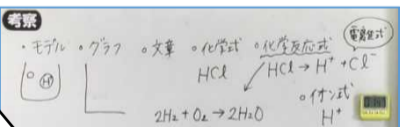 考察
・モデル ・グラフ 。文章 。化学式 。化学反応式 電離式
H HCl HCl → H⁺ + Cl⁻
2H₂ + O₂ → 2H₂O 。イオン式
H⁺